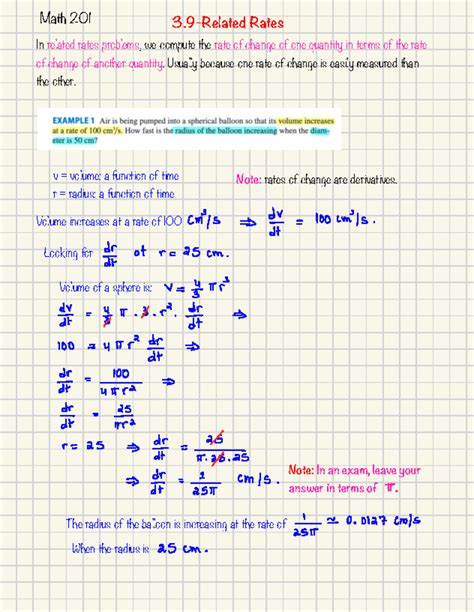 Math 201
3.9-Related Rates
In related rates problems, we compute the rate of change of one quantity in terms of the rate
of change of another quantity. Usually because one rate of change is easily measured than
the other.
EXAMPLE 1 Air is being pumped into a spherical balloon so that its volume increases
at a rate of 100 cm³/s. How fast is the radius of the balloon increasing when the diam-
eter is 50 cm?
v = volume: a function of time
Note: rates of change are derivatives.
r = radius: a function of time
Volume increases at a rate of 100 cm³/s ⇒ dv/dt = 100 cm³/s.
Looking for dr/dt at r = 25 cm.
Volume of a sphere is: V = 4/3 π r³
dv/dt = 4/3 π · 3 · r² · dr/dt ⇒
100 = 4 π r² dr/dt ⇒
dr/dt = 100/4πr² ⇒
dr/dt = 25/πr²
r = 25 ⇒ dr/dt = 25/π·25·25
⇒ dr/dt = 1/25π cm/s.
Note: In an exam, leave your
answer in terms of π.
The radius of the balloon is increasing at the rate of 1/25π ≃ 0.0127 cm/s
When the radius is 25 cm.